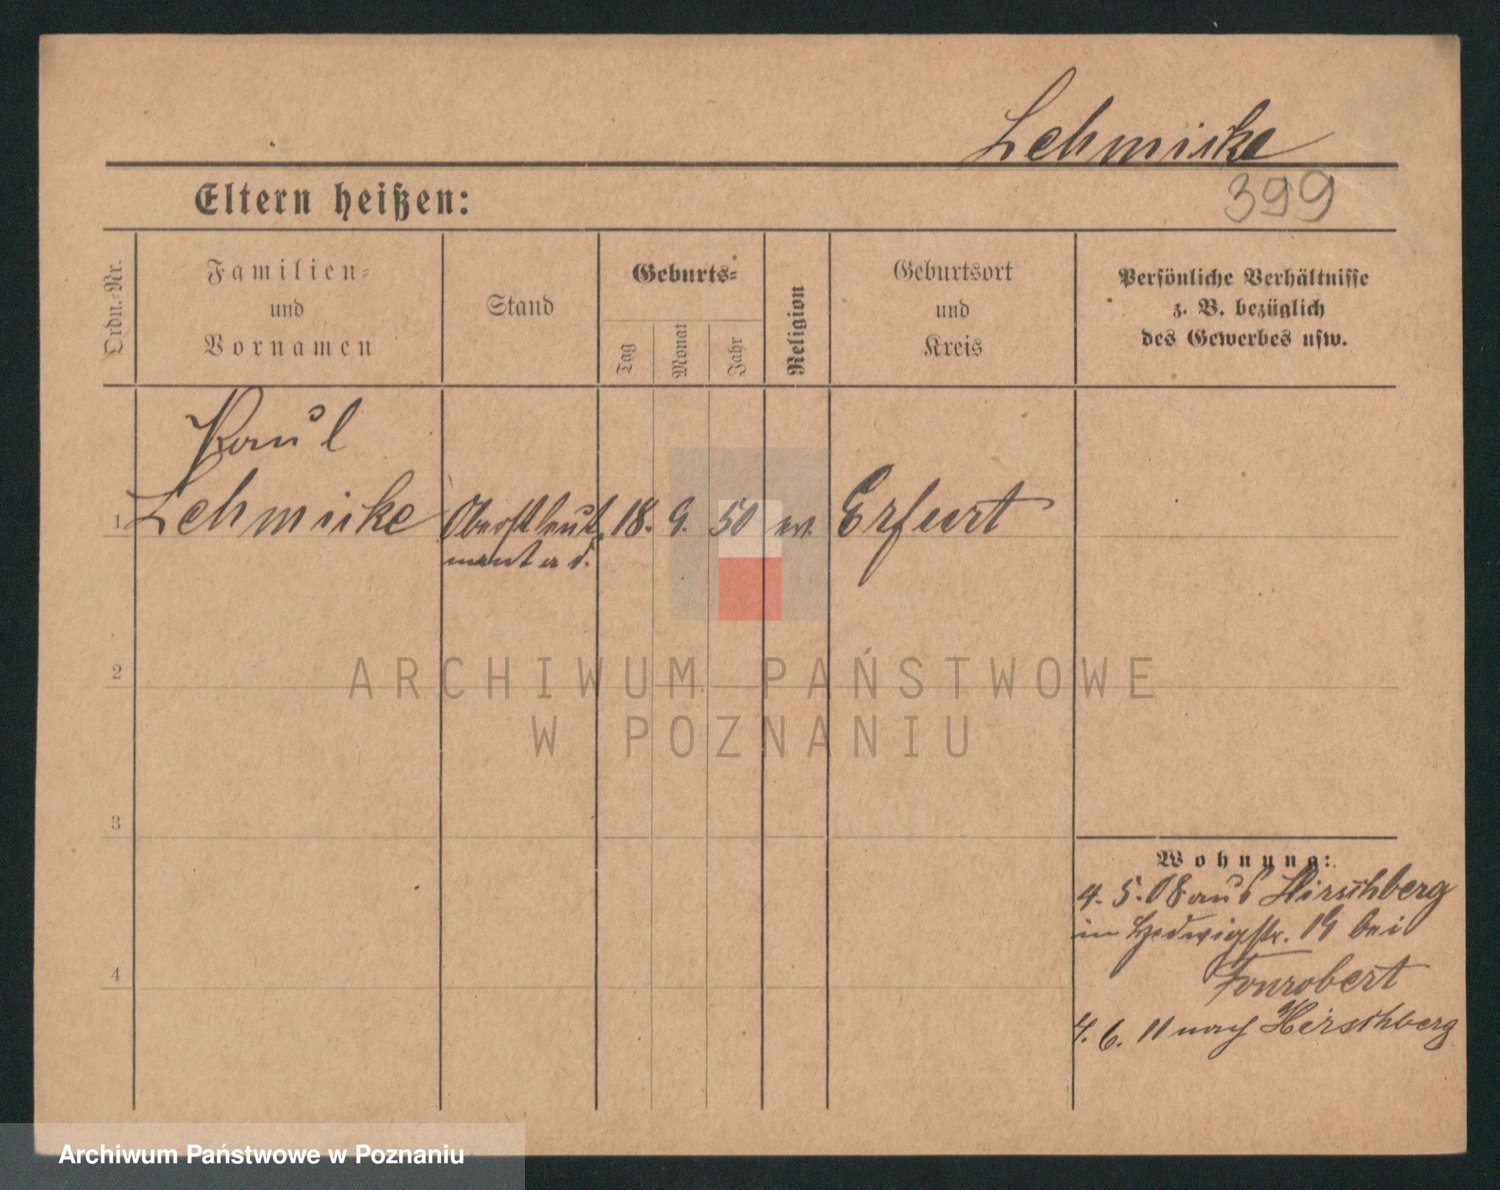 Lehmicke
399
Eltern heißen:
Ordn.-Nr.
Familien-
und
Vornamen
Stand
Geburts-
Tag
Monat
Jahr
Religion
Geburtsort
und
Kreis
Persönliche Verhältnisse
z. B. bezüglich
des Gewerbes usw.
Paul
1 Lehmicke Oberstleut 18. 9. 50 ev. Erfurt
nant a d.
2
ARCHIWUM PAŃSTWOWE
W POZNANIU
3
Wohnung:
4. 5. 08 aus Hirschberg
in Hedwigstr. 19 bei
Fonrobert
4
4. 6. 11 nach Hirschberg
Archiwum Państwowe w Poznaniu